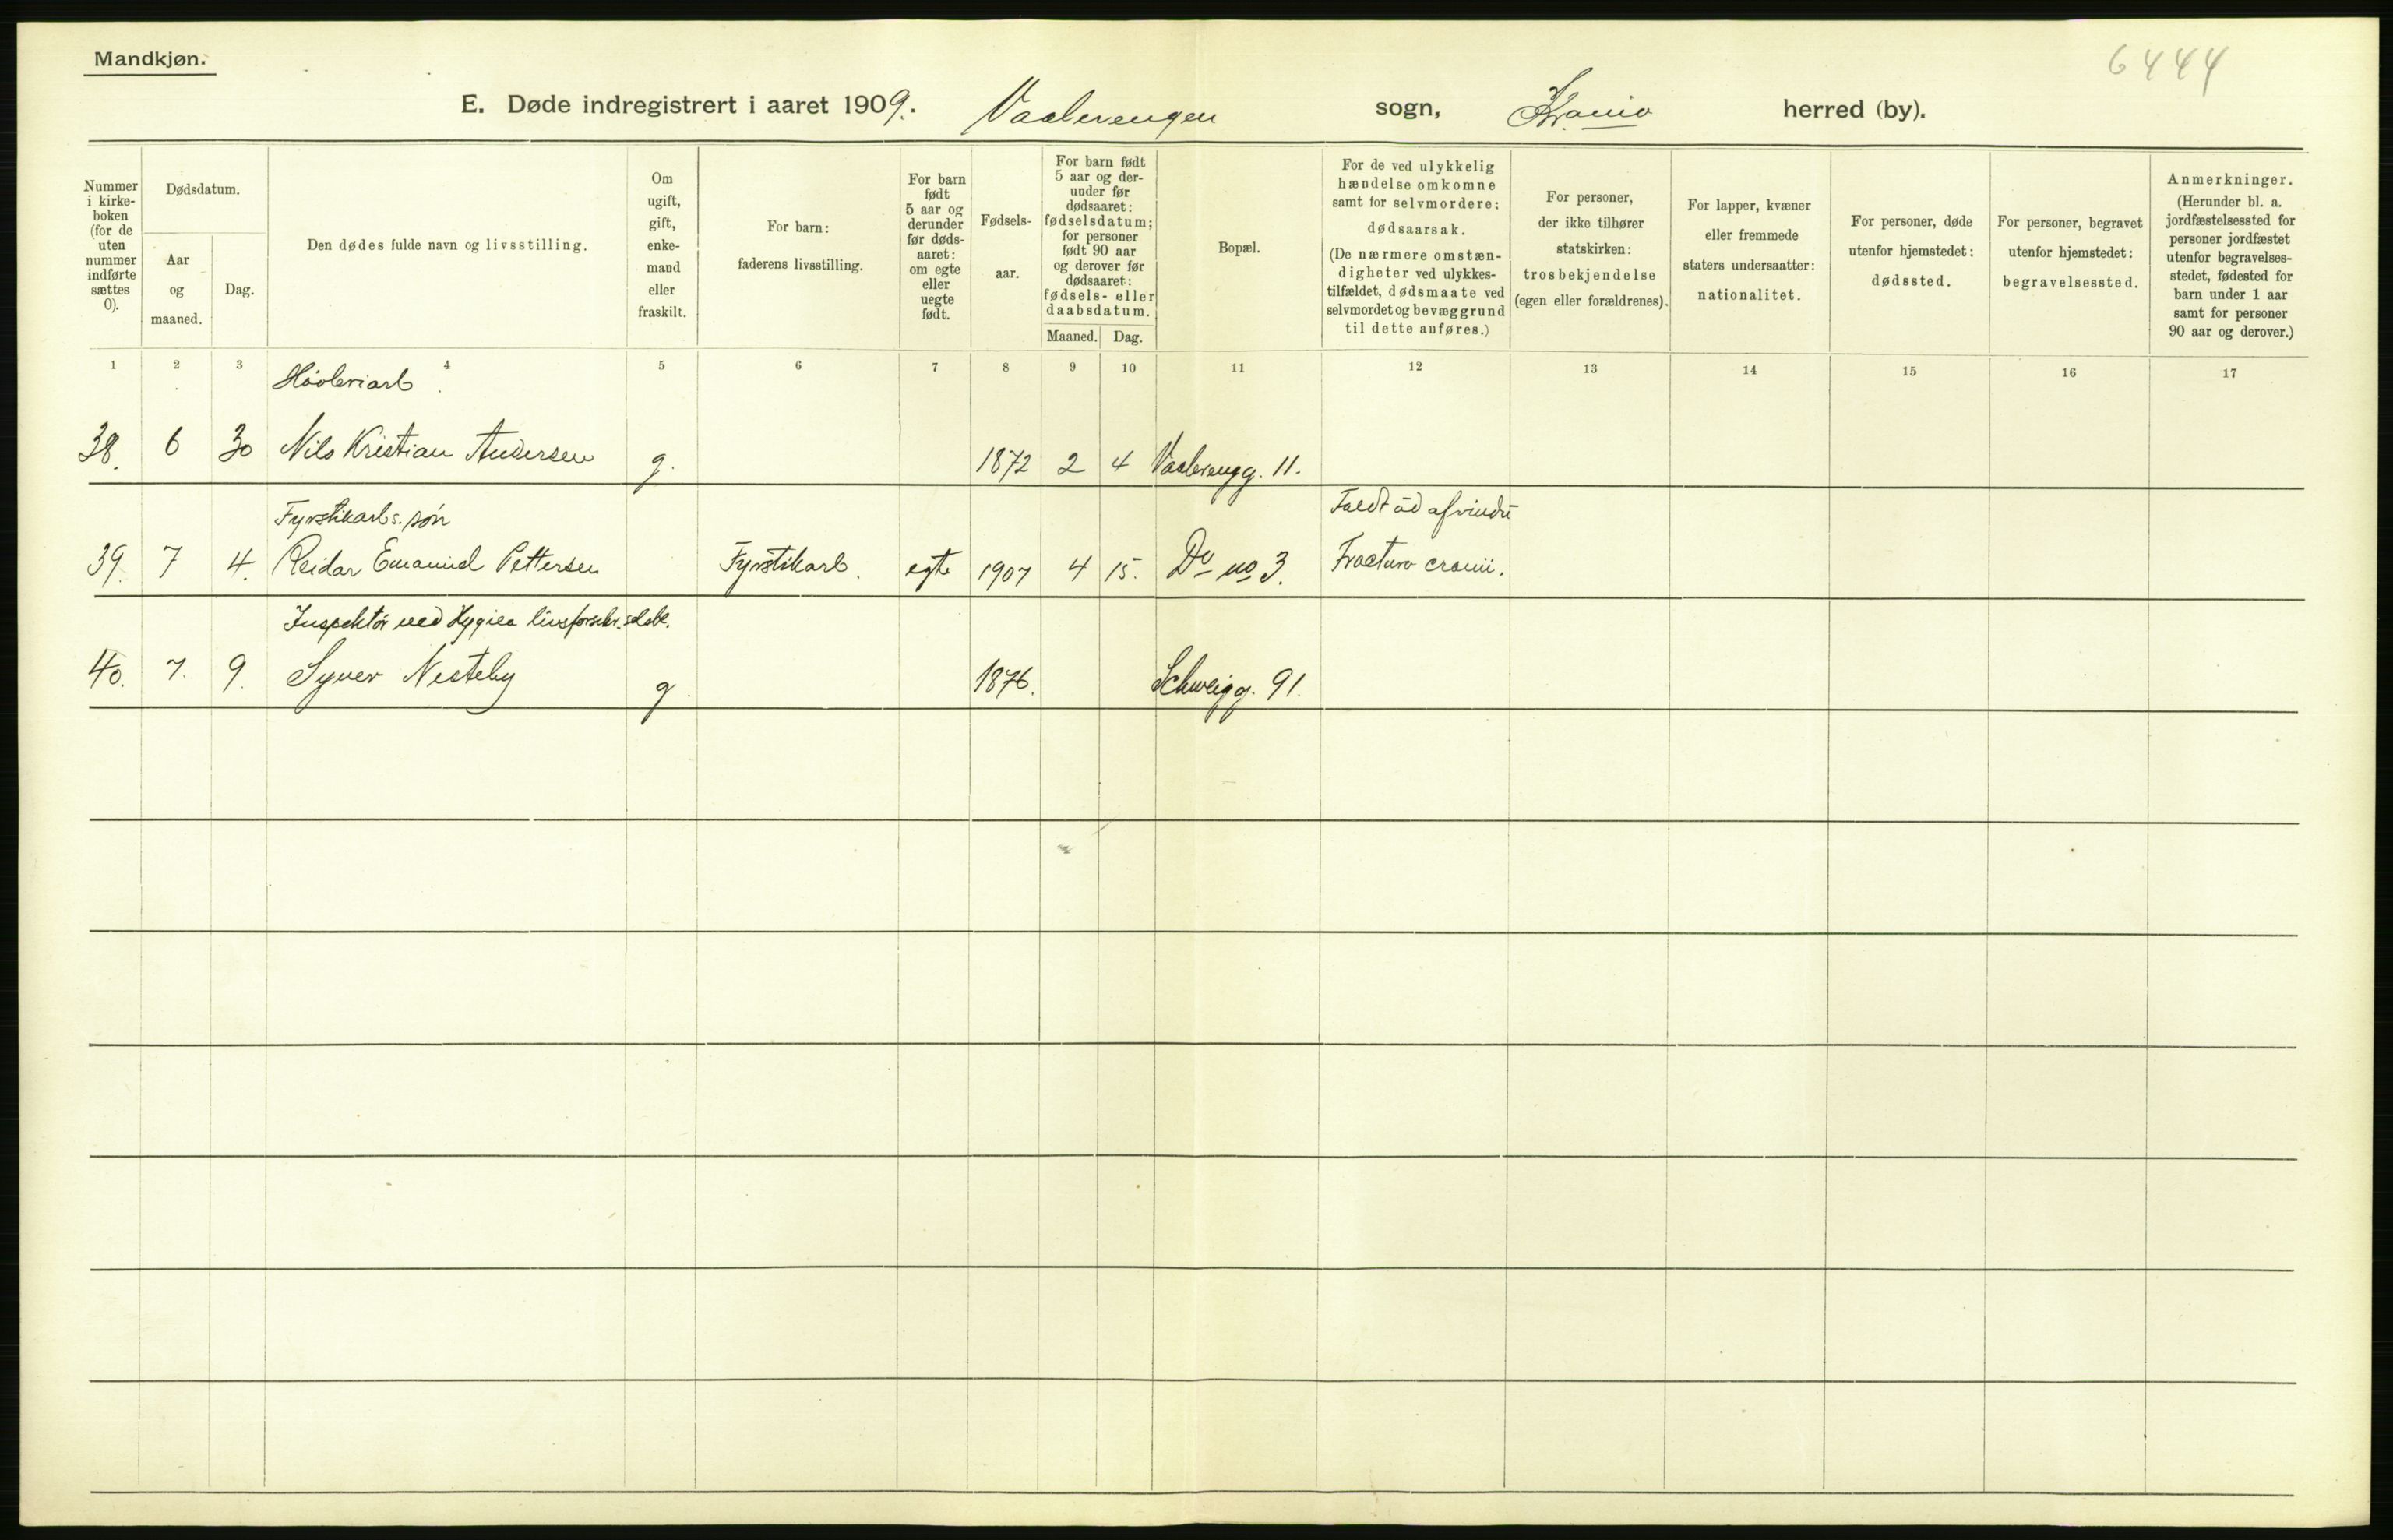 Mandkjøn.
6444
E. Døde indregistrert i aaret 1909. Vaalerengen sogn, Krania herred (by).
Nummer i kirke-boken (for de uten nummer indførte sættes 0).
Dødsdatum.
Aar og maaned.
Dag.
Den dødes fulde navn og livsstilling.
Om ugift, gift, enke-mand eller fraskilt.
For barn: faderens livsstilling.
For barn født 5 aar og derunder før døds-aaret: om egte eller uegte født.
Fødsels-aar.
For barn født 5 aar og der-under før dødsaaret: fødselsdatum; for personer født 90 aar og derover før dødsaaret: fødsels- eller daabsdatum.
Maaned. Dag.
Bopæl.
For de ved ulykkelig hændelse omkomne samt for selvmordere: dødsaarsak. (De nærmere omstæn-digheter ved ulykkes-tilfældet, dødsmaate ved selvmordet og bevæggrund til dette anføres.)
For personer, der ikke tilhører statskirken: trosbekjendelse (egen eller forældrenes).
For lapper, kvæner eller fremmede staters undersaatter: nationalitet.
For personer, døde utenfor hjemstedet: dødssted.
For personer, begravet utenfor hjemstedet: begravelsessted.
Anmerkninger. (Herunder bl. a. jordfæstelsessted for personer jordfæstet utenfor begravelses-stedet, fødested for barn under 1 aar samt for personer 90 aar og derover.)
1 2 3 4 5 6 7 8 9 10 11 12 13 14 15 16 17
Høvleriarb.
38. 6 30 Nils Kristian Andersen g. 1872 2 4 Vaalerengg. 11.
Fyrstikarb.s. søn Faldt ud af vindu
39. 7 4. Reidar Emanuel Pettersen Fyrstikarb. egte 1907 4 15. Do no 3. Fractura cranii.
Inspektør ved Hygiea livsforsikr.selsk.
40. 7. 9. Syver Nesteby g. 1876. Schweigg. 91.